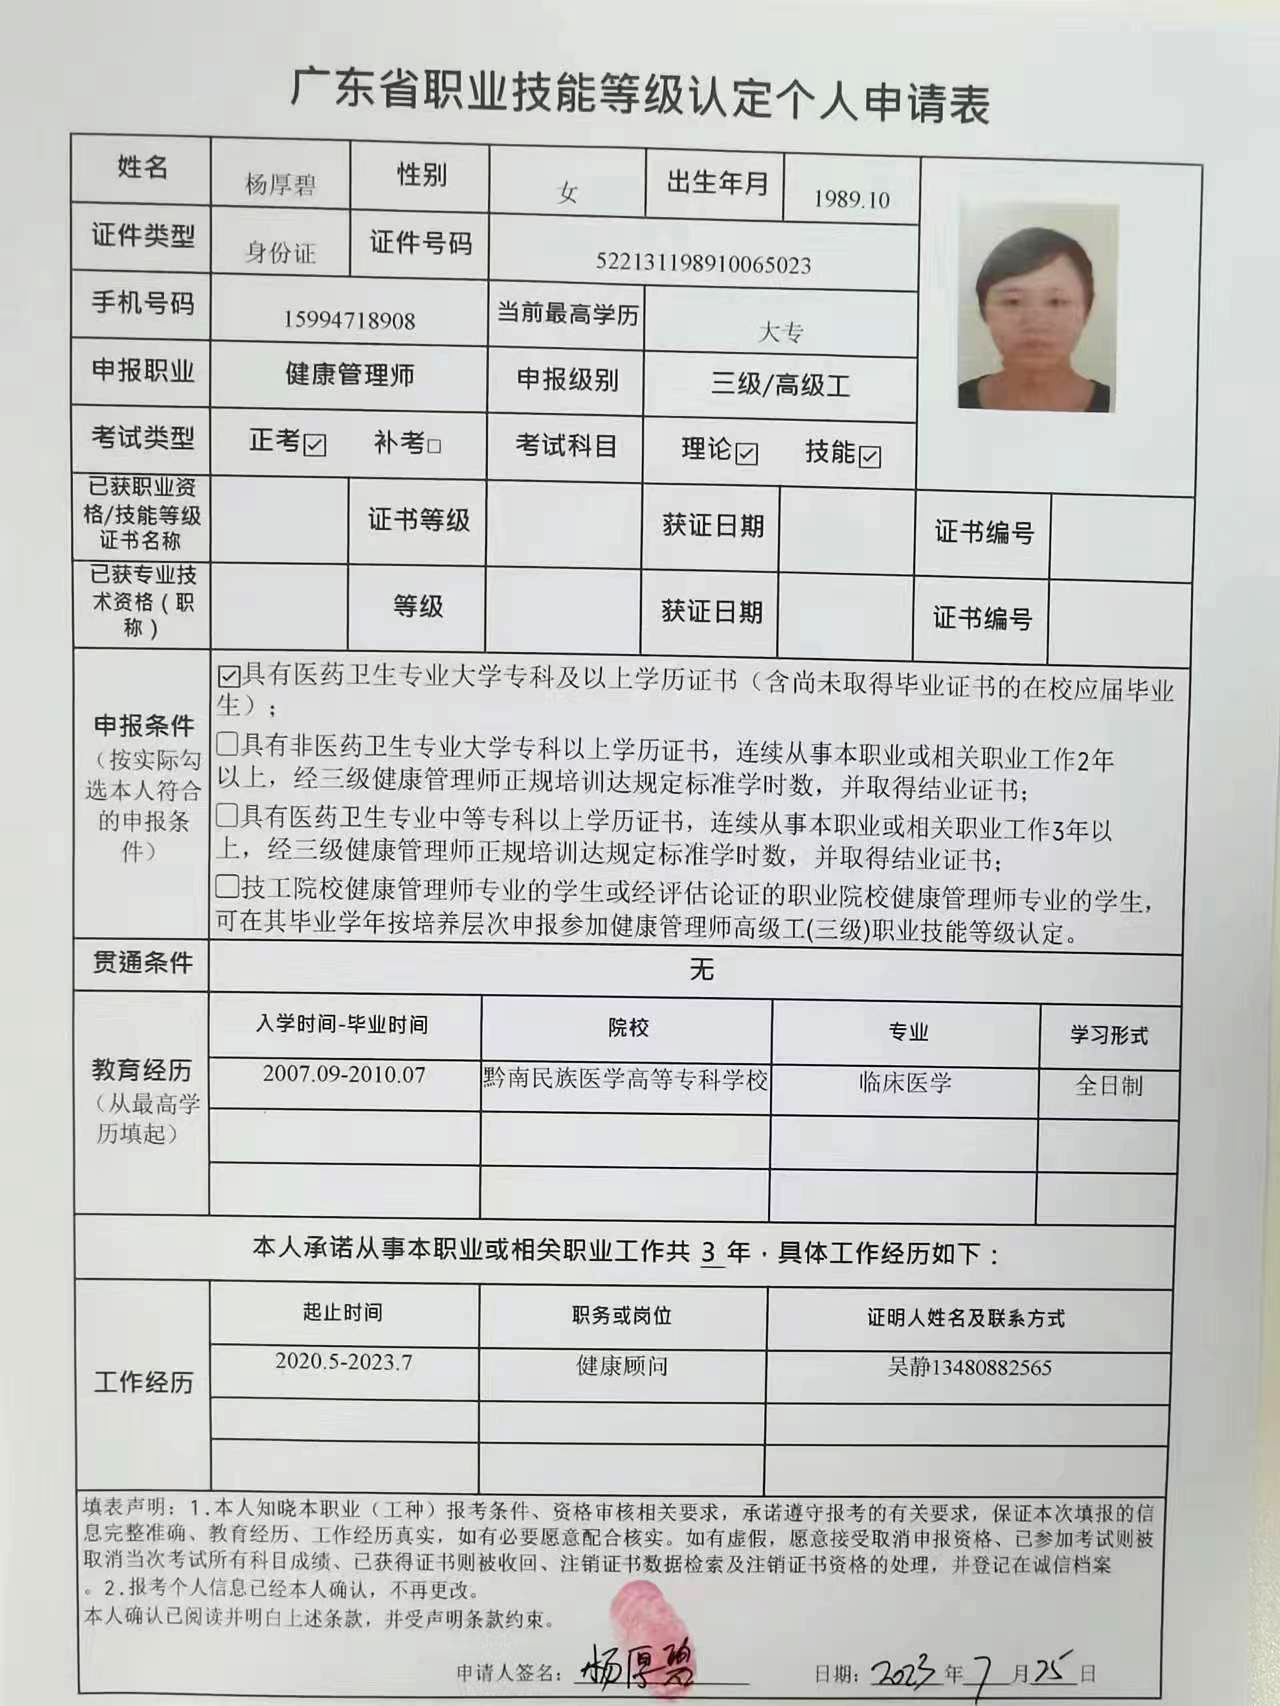 广东省职业技能等级认定个人申请表
姓名 杨厚碧 性别 女 出生年月 1989.10
证件类型 身份证 证件号码 522131198910065023
手机号码 15994718908 当前最高学历 大专
申报职业 健康管理师 申报级别 三级/高级工
考试类型 正考☑ 补考□ 考试科目 理论☑ 技能☑
已获职业资
格/技能等级
证书名称
证书等级 获证日期 证书编号
已获专业技
术资格（职
称）
等级 获证日期 证书编号
申报条件
（按实际勾
选本人符合
的申报条
件）
☑具有医药卫生专业大学专科及以上学历证书（含尚未取得毕业证书的在校应届毕业
生）；
□具有非医药卫生专业大学专科以上学历证书，连续从事本职业或相关职业工作2年
以上，经三级健康管理师正规培训达规定标准学时数，并取得结业证书；
□具有医药卫生专业中等专科以上学历证书，连续从事本职业或相关职业工作3年以
上，经三级健康管理师正规培训达规定标准学时数，并取得结业证书；
□技工院校健康管理师专业的学生或经评估论证的职业院校健康管理师专业的学生，
可在其毕业学年按培养层次申报参加健康管理师高级工(三级)职业技能等级认定。
贯通条件 无
教育经历
（从最高学
历填起）
入学时间-毕业时间 院校 专业 学习形式
2007.09-2010.07 黔南民族医学高等专科学校 临床医学 全日制
本人承诺从事本职业或相关职业工作共 3 年，具体工作经历如下：
工作经历
起止时间 职务或岗位 证明人姓名及联系方式
2020.5-2023.7 健康顾问 吴静13480882565
填表声明：1.本人知晓本职业（工种）报考条件、资格审核相关要求，承诺遵守报考的有关要求，保证本次填报的信
息完整准确、教育经历、工作经历真实，如有必要愿意配合核实。如有虚假，愿意接受取消申报资格、已参加考试则被
取消当次考试所有科目成绩、已获得证书则被收回、注销证书数据检索及注销证书资格的处理，并登记在诚信档案
。2.报考个人信息已经本人确认，不再更改。
本人确认已阅读并明白上述条款，并受声明条款约束。
申请人签名：杨厚碧 日期：2023年7月25日